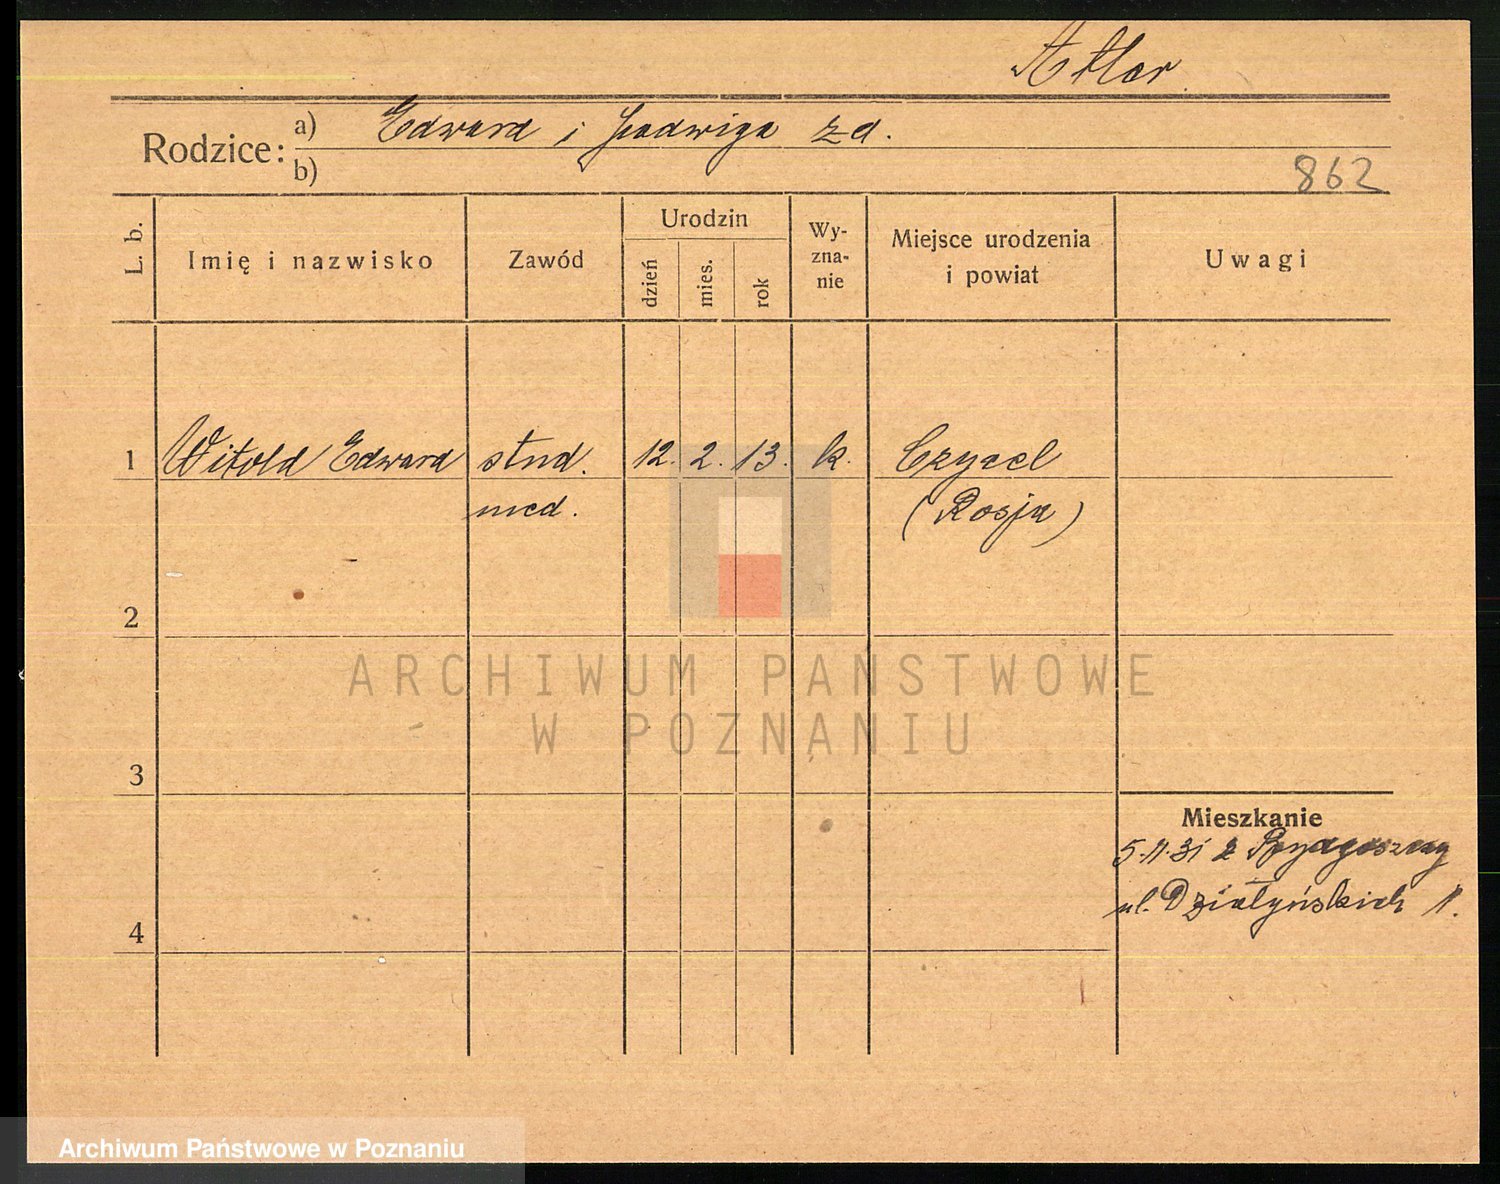 Adler
Rodzice:
a) Edward i Jadwiga zd.
b)
862
L. b.
Imię i nazwisko
Zawód
Urodzin
dzień
mies.
rok
Wy-
zna-
nie
Miejsce urodzenia
i powiat
Uwagi
1 Witold Edward stud. 12. 2. 13. k.
med. (Rosja)
2
ARCHIWUM PAŃSTWOWE
W POZNANIU
3
Mieszkanie
5.11.31 z Bydgoszczy
ul. Działyńskich 11.
4
Archiwum Państwowe w Poznaniu